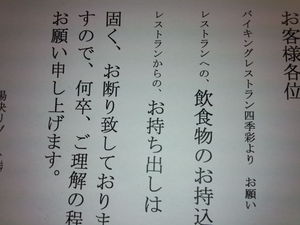 お客様各位
バイキングレストラン四季彩より　お願い
レストランへの、飲食物のお持込
レストランからの、お持ち出しは
固く、お断り致しておりま
すので、何卒、ご理解の程
お願い申し上げます。